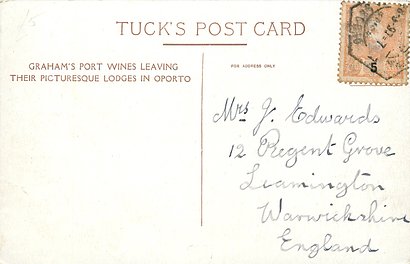 TUCK'S POST CARD
GRAHAM'S PORT WINES LEAVING
THEIR PICTURESQUE LODGES IN OPORTO
FOR ADDRESS ONLY
Mrs J. Edwards
12 Regent Grove
Leamington
Warwickshire
England